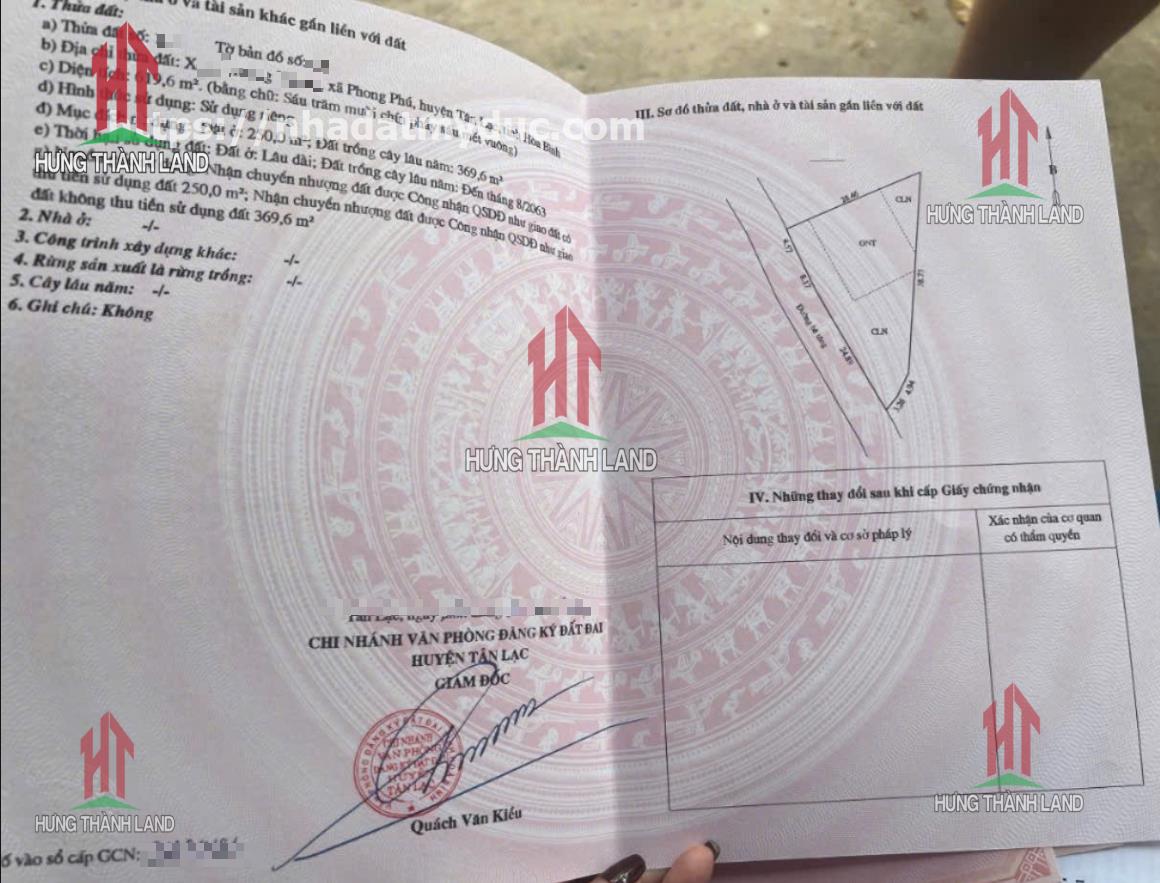 ở và tài sản khác gắn liền với đất
1. Thửa đất:
a) Thửa đất số:
Tờ bản đồ số:
b) Địa chỉ thửa đất: X
xã Phong Phú, huyện Tân Lạc, tỉnh Hòa Bình
c) Diện tích: 619,6 m². (bằng chữ: Sáu trăm mười chín phẩy sáu mét vuông)
d) Hình thức sử dụng: Sử dụng riêng
đ) Mục đích sử dụng: Đất ở: 250,0 m²; Đất trồng cây lâu năm: 369,6 m²
e) Thời hạn sử dụng đất: Đất ở: Lâu dài; Đất trồng cây lâu năm: Đến tháng 8/2063
Nhận chuyển nhượng đất được Công nhận QSDĐ như giao đất có
thu tiền sử dụng đất 250,0 m²; Nhận chuyển nhượng đất được Công nhận QSDĐ như giao
đất không thu tiền sử dụng đất 369,6 m²
2. Nhà ở: -/-
3. Công trình xây dựng khác: -/-
4. Rừng sản xuất là rừng trồng: -/-
5. Cây lâu năm: -/-
6. Ghi chú: Không
CHI NHÁNH VĂN PHÒNG ĐĂNG KÝ ĐẤT ĐAI
HUYỆN TÂN LẠC
GIÁM ĐỐC
CHI NHÁNH
VĂN PHÒNG
ĐĂNG KÝ ĐẤT ĐAI
HUYỆN
TÂN LẠC
Quách Văn Kiều
số vào sổ cấp GCN:
III. Sơ đồ thửa đất, nhà ở và tài sản gắn liền với đất
B
CLN
ONT
4.57
8.37
Đường bê tông
24.89
CLN
4.94
3.26
IV. Những thay đổi sau khi cấp Giấy chứng nhận
Nội dung thay đổi và cơ sở pháp lý
Xác nhận của cơ quan
có thẩm quyền
HƯNG THÀNH LAND
HƯNG THÀNH LAND
HƯNG THÀNH LAND
HƯNG THÀNH LAND
HƯNG THÀNH LAND